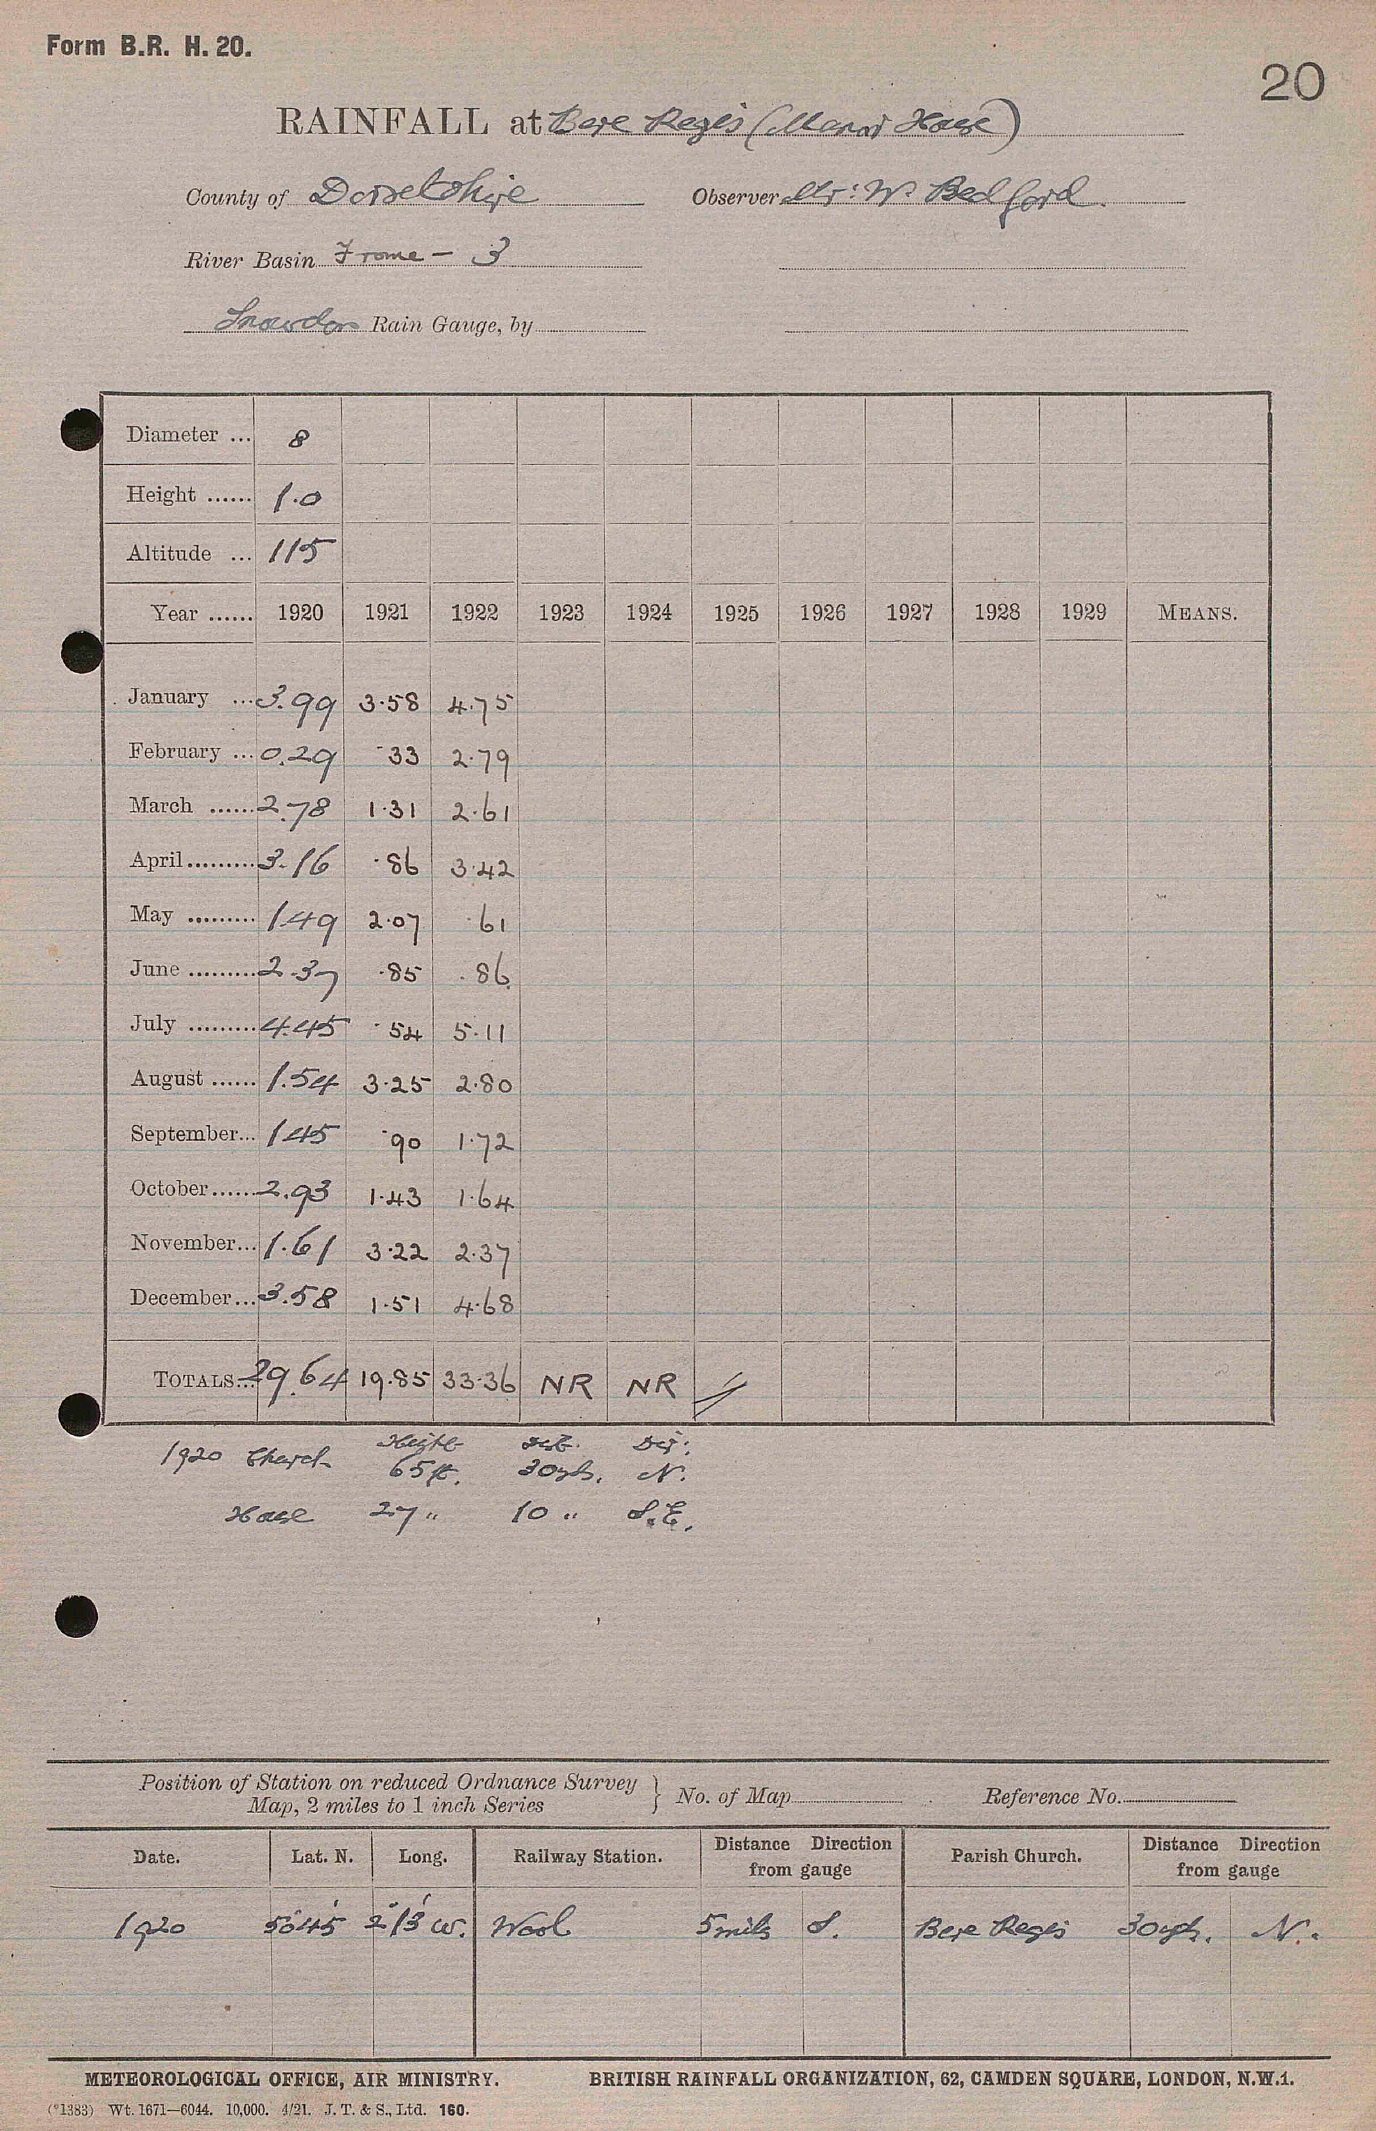 Form B.R. H. 20.
20
RAINFALL at Bere Regis (Manor House)
County of Dorsetshire Observer Mr. W. Bedford.
River Basin Frome - 3
Snowdon Rain Gauge, by
Diameter ... 8
Height ...... 1.0
Altitude ... 115
Year ...... 1920 1921 1922 1923 1924 1925 1926 1927 1928 1929 MEANS.
January ... 3.99 3.58 4.75
February ... 0.29 .33 2.79
March ...... 2.78 1.31 2.61
April ......... 3.16 .86 3.42
May ......... 1.49 2.07 .61
June ......... 2.37 .85 .86
July ......... 4.45 .54 5.11
August ...... 1.54 3.25 2.80
September... 1.45 .90 1.72
October...... 2.93 1.43 1.64
November... 1.61 3.22 2.37
December... 3.58 1.51 4.68
TOTALS... 29.64 19.85 33.36 NR NR
Height Dist. Dir:
1920 Church 65ft. 30yds. N.
House 27 " 10 " S.E.
Position of Station on reduced Ordnance Survey
Map, 2 miles to 1 inch Series } No. of Map Reference No.
Date. Lat. N. Long. Railway Station. Distance Direction from gauge Parish Church. Distance Direction from gauge
1920 50° 45' 2° 13' W. Wool 5 mils S. Bere Regis 30yds. N.
METEOROLOGICAL OFFICE, AIR MINISTRY. BRITISH RAINFALL ORGANIZATION, 62, CAMDEN SQUARE, LONDON, N.W.1.
(*1383) Wt. 1671—6044. 10,000. 4/21. J. T. & S., Ltd. 160.